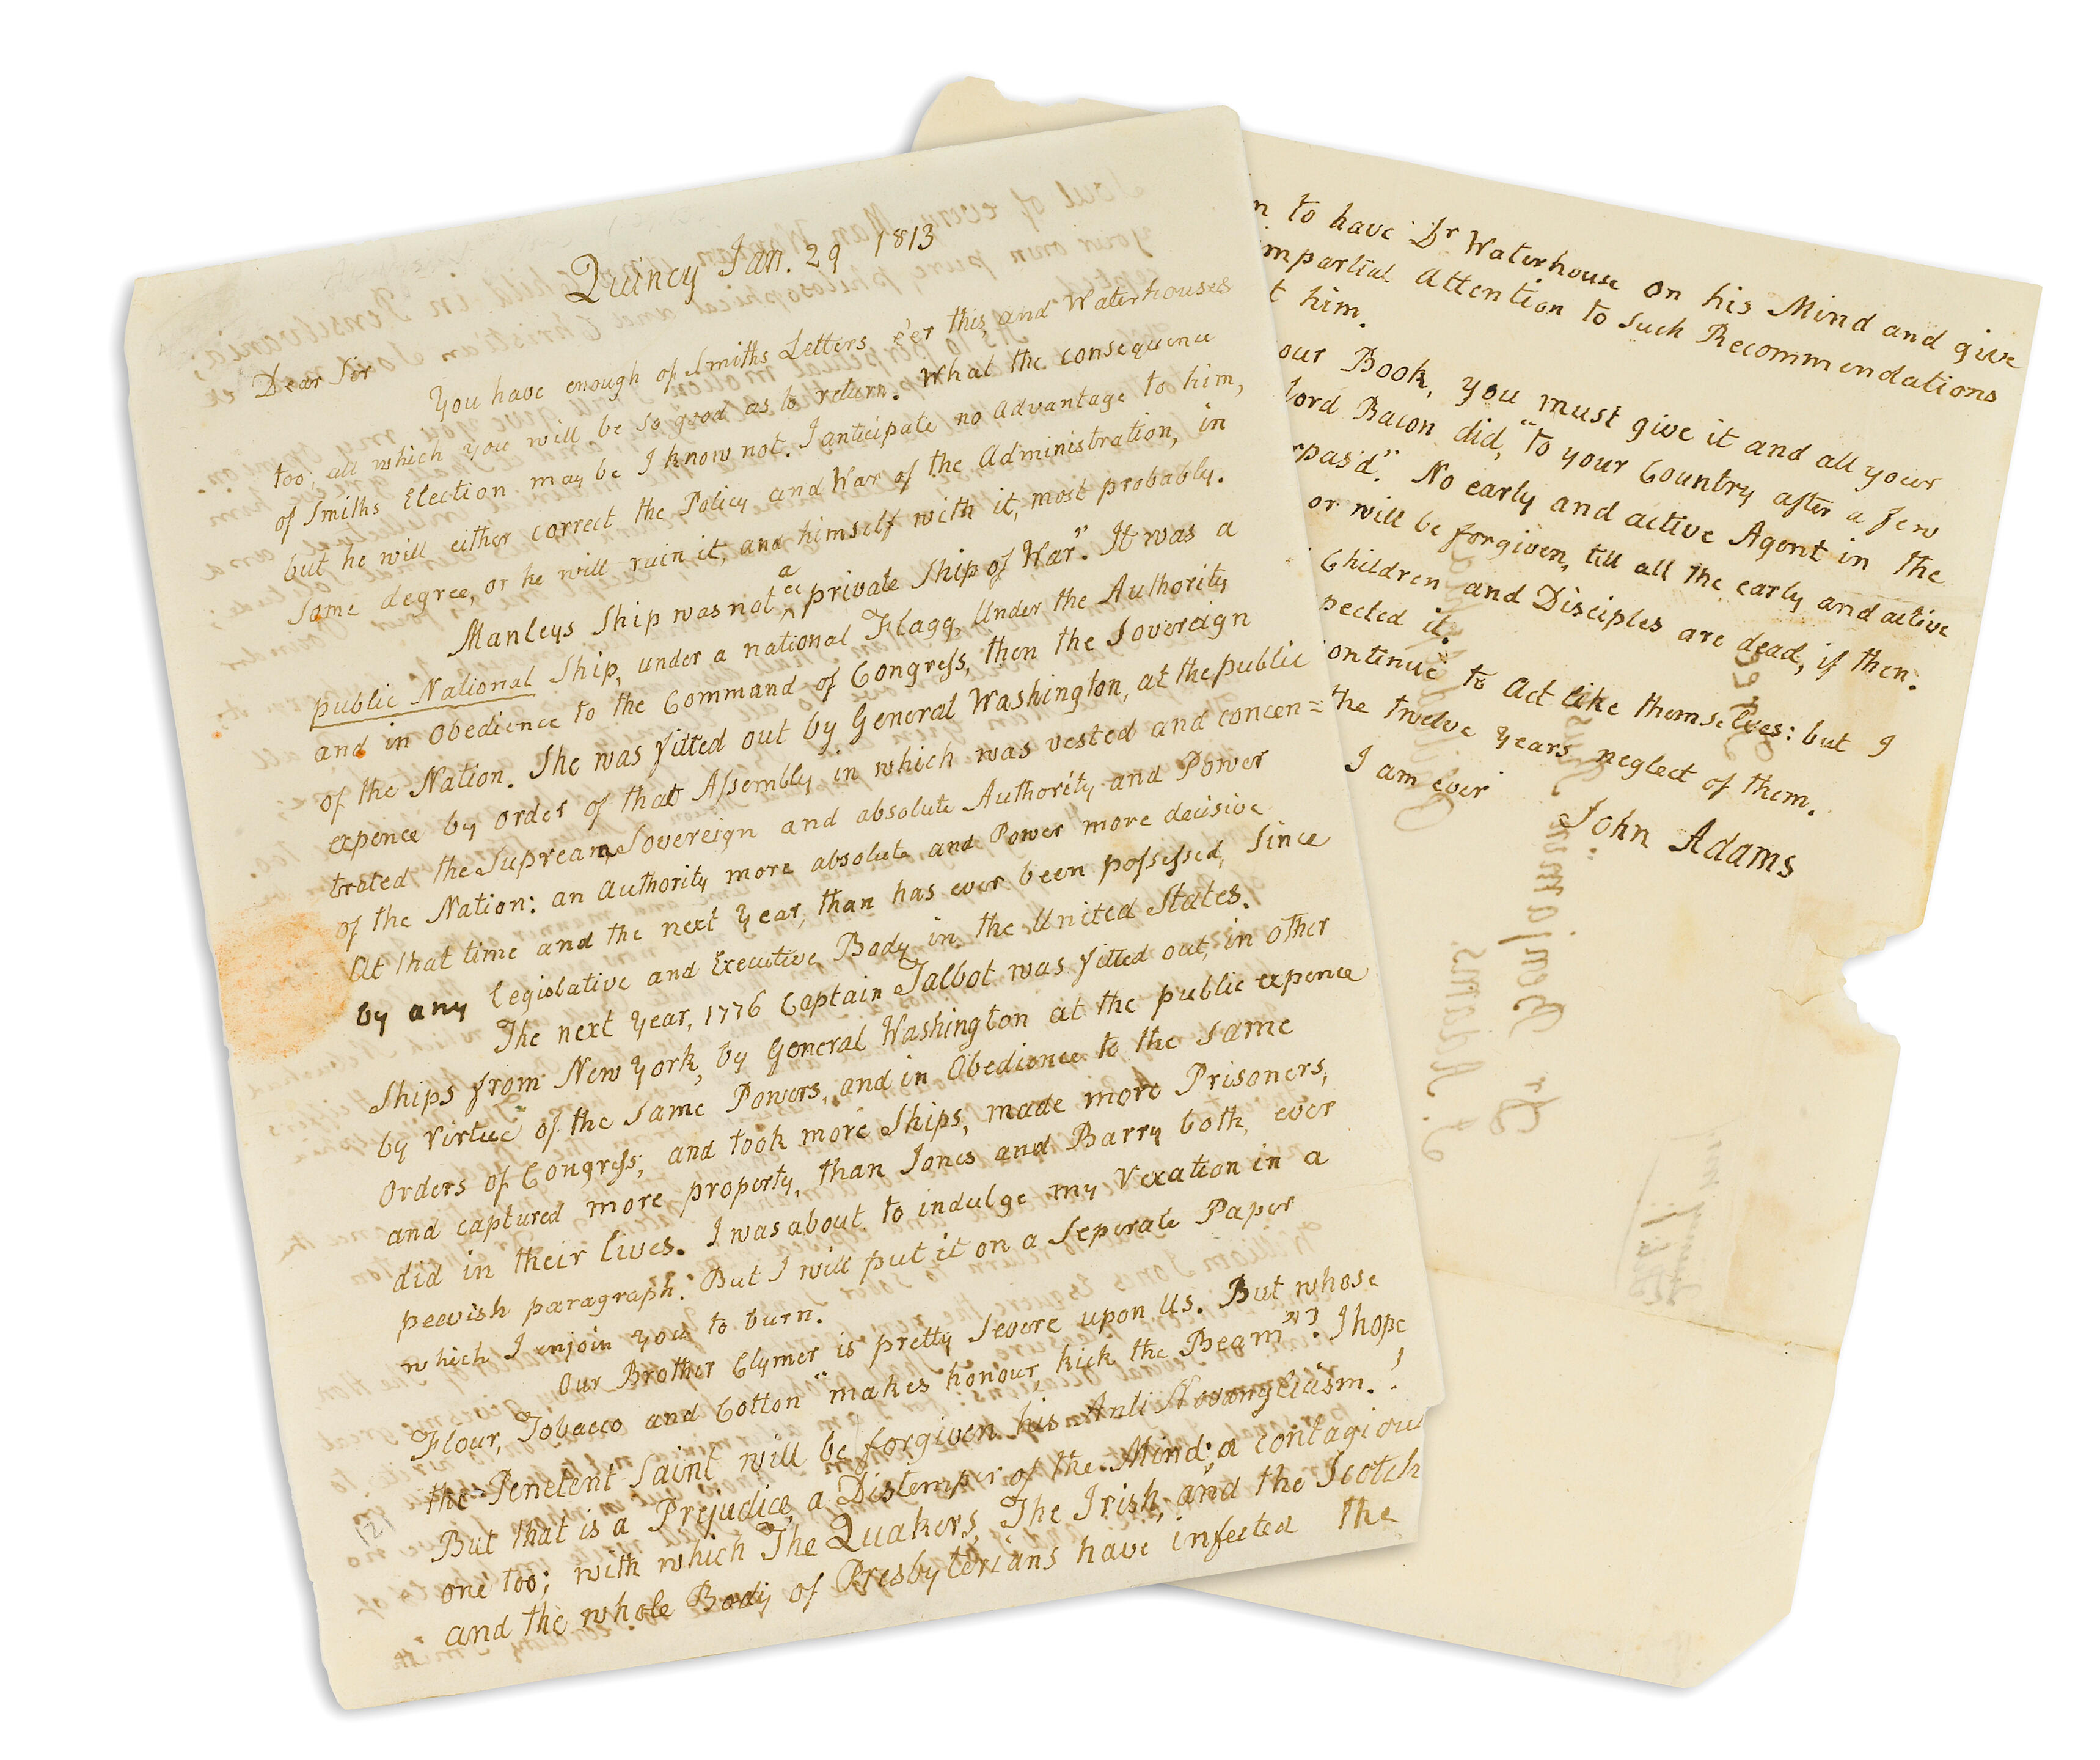 Quincy Jan. 29 1813
Dear Sir
You have enough of Smiths Letters e'er this, and Waterhouses
too; all which you will be so good as to return. What the consequence
of Smiths Election may be I know not. I anticipate no advantage to him,
but he will either correct the Policy and War of the Administration, in
some degree, or he will ruin it, and himself with it, most probably.
Manleys Ship was not a private Ship of War". It was a
public National Ship, under a national Flagg, Under the Authority
and in Obedience to the Command of Congress, then the Sovereign
of the Nation. She was fitted out by General Washington, at the public
expence by order of that Assembly in which was vested and concen=
trated the Supream, Sovereign and absolute Authority and Power
of the Nation: an authority more absolute and Power more decisive
At that time and the next Year, than has ever been possessed, Since
by any Legislative and Executive Body in the United States.
The next Year, 1776 Captain Talbot was fitted out, in other
Ships from New York, by General Washington at the public expence
by Virtue of the Same Powers, and in Obedience to the Same
Orders of Congress; and took more Ships, made more Prisoners,
and captured more property, than Jones and Barry both, ever
did in their lives. I was about to indulge my Vexation in a
peevish paragraph. But I will put it on a Seperate Paper
which I enjoin you to burn.
Our Brother Clymer is pretty Severe upon Us. But whose
Flour, Tobacco and Cotton "makes honour, kick the Beam"? I hope
the Penetent Saint will be forgiven his Anti Novanglicism.!
But that is a Prejudice, a Distemper of the Mind; a contagious
one too; with which The Quakers, The Irish, and the Scotch
and the whole Body of Presbyterians have infected the
to have Dr Waterhouse on his Mind and give
impartial Attention to such Recommendations
him.
our Book, you must give it and all your
lord Bacon did, "to your Country after a few
No early and active Agent in the
or will be forgiven, till all the early and active
Children and Disciples are dead, if then.
it.
to Act like themselves: but I
the twelve Years neglect of them.
I am ever
John Adams